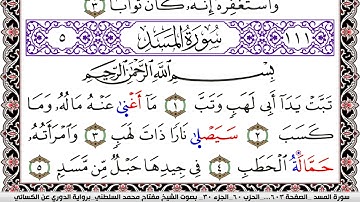 وَاسْتَغْفِرْهُ إِنَّهُ كَانَ تَوَّابًا ٣
١١١ سُورَةُ المَسَدِ ٥
بِسْمِ اللَّهِ الرَّحْمَنِ الرَّحِيمِ
تَبَّتْ يَدَآ أَبِي لَهَبٍ وَتَبَّ ١ مَآ أَغْنَىٰ عَنْهُ مَالُهُ وَمَا
كَسَبَ ٢ سَيَصْلَىٰ نَارًا ذَاتَ لَهَبٍ ٣ وَامْرَأَتُهُ
حَمَّالَةُ الْحَطَبِ ٤ فِي جِيدِهَا حَبْلٌ مِن مَّسَدٍ ٥
سورة المسد الصفحة ٦٠٣ الحزب ٦٠ الجزء ٣٠ بصوت الشيخ مفتاح محمد السلطني برواية الدوري عن الكسائي